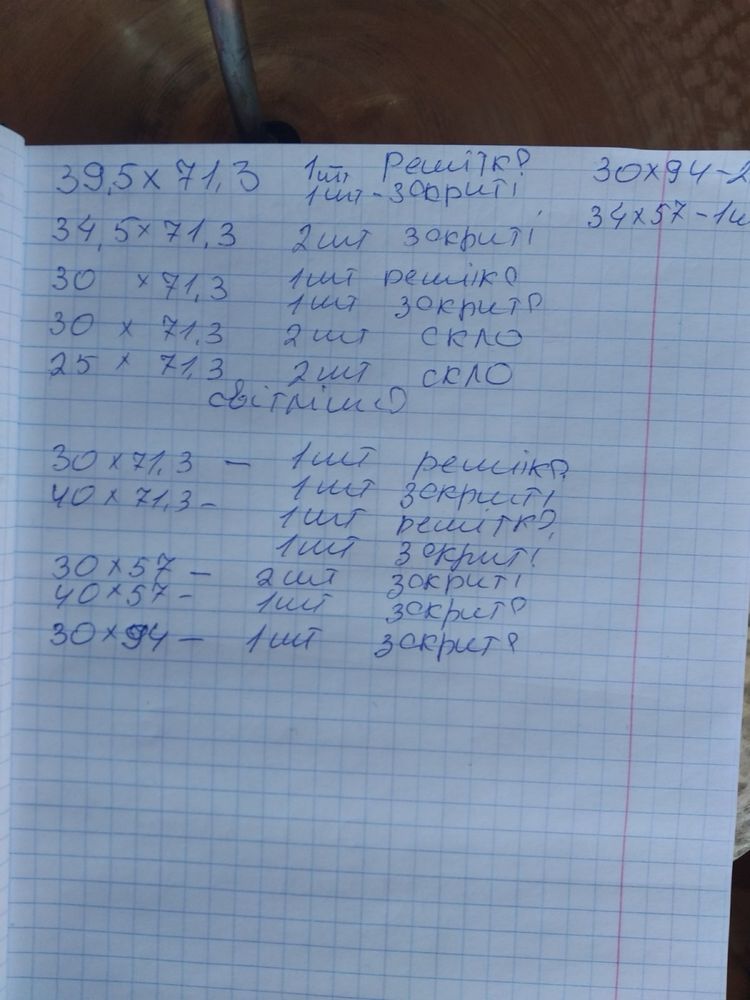 39,5 х 71,3 1шт решітка
1шт - закриті
34,5 х 71,3 2шт закриті
30 х 71,3 1шт решіка
1шт закрита
30 х 71,3 2шт скло
25 х 71,3 2шт скло
світліша
30 х 71,3 - 1шт решіка
1шт закриті
40 х 71,3 - 1шт решітка
1шт закриті
30 х 57 - 2шт закриті
40 х 57 - 1шт закрита
30 х 94 - 1шт закрита
30 х 94 - 2
34 х 57 - 1ш